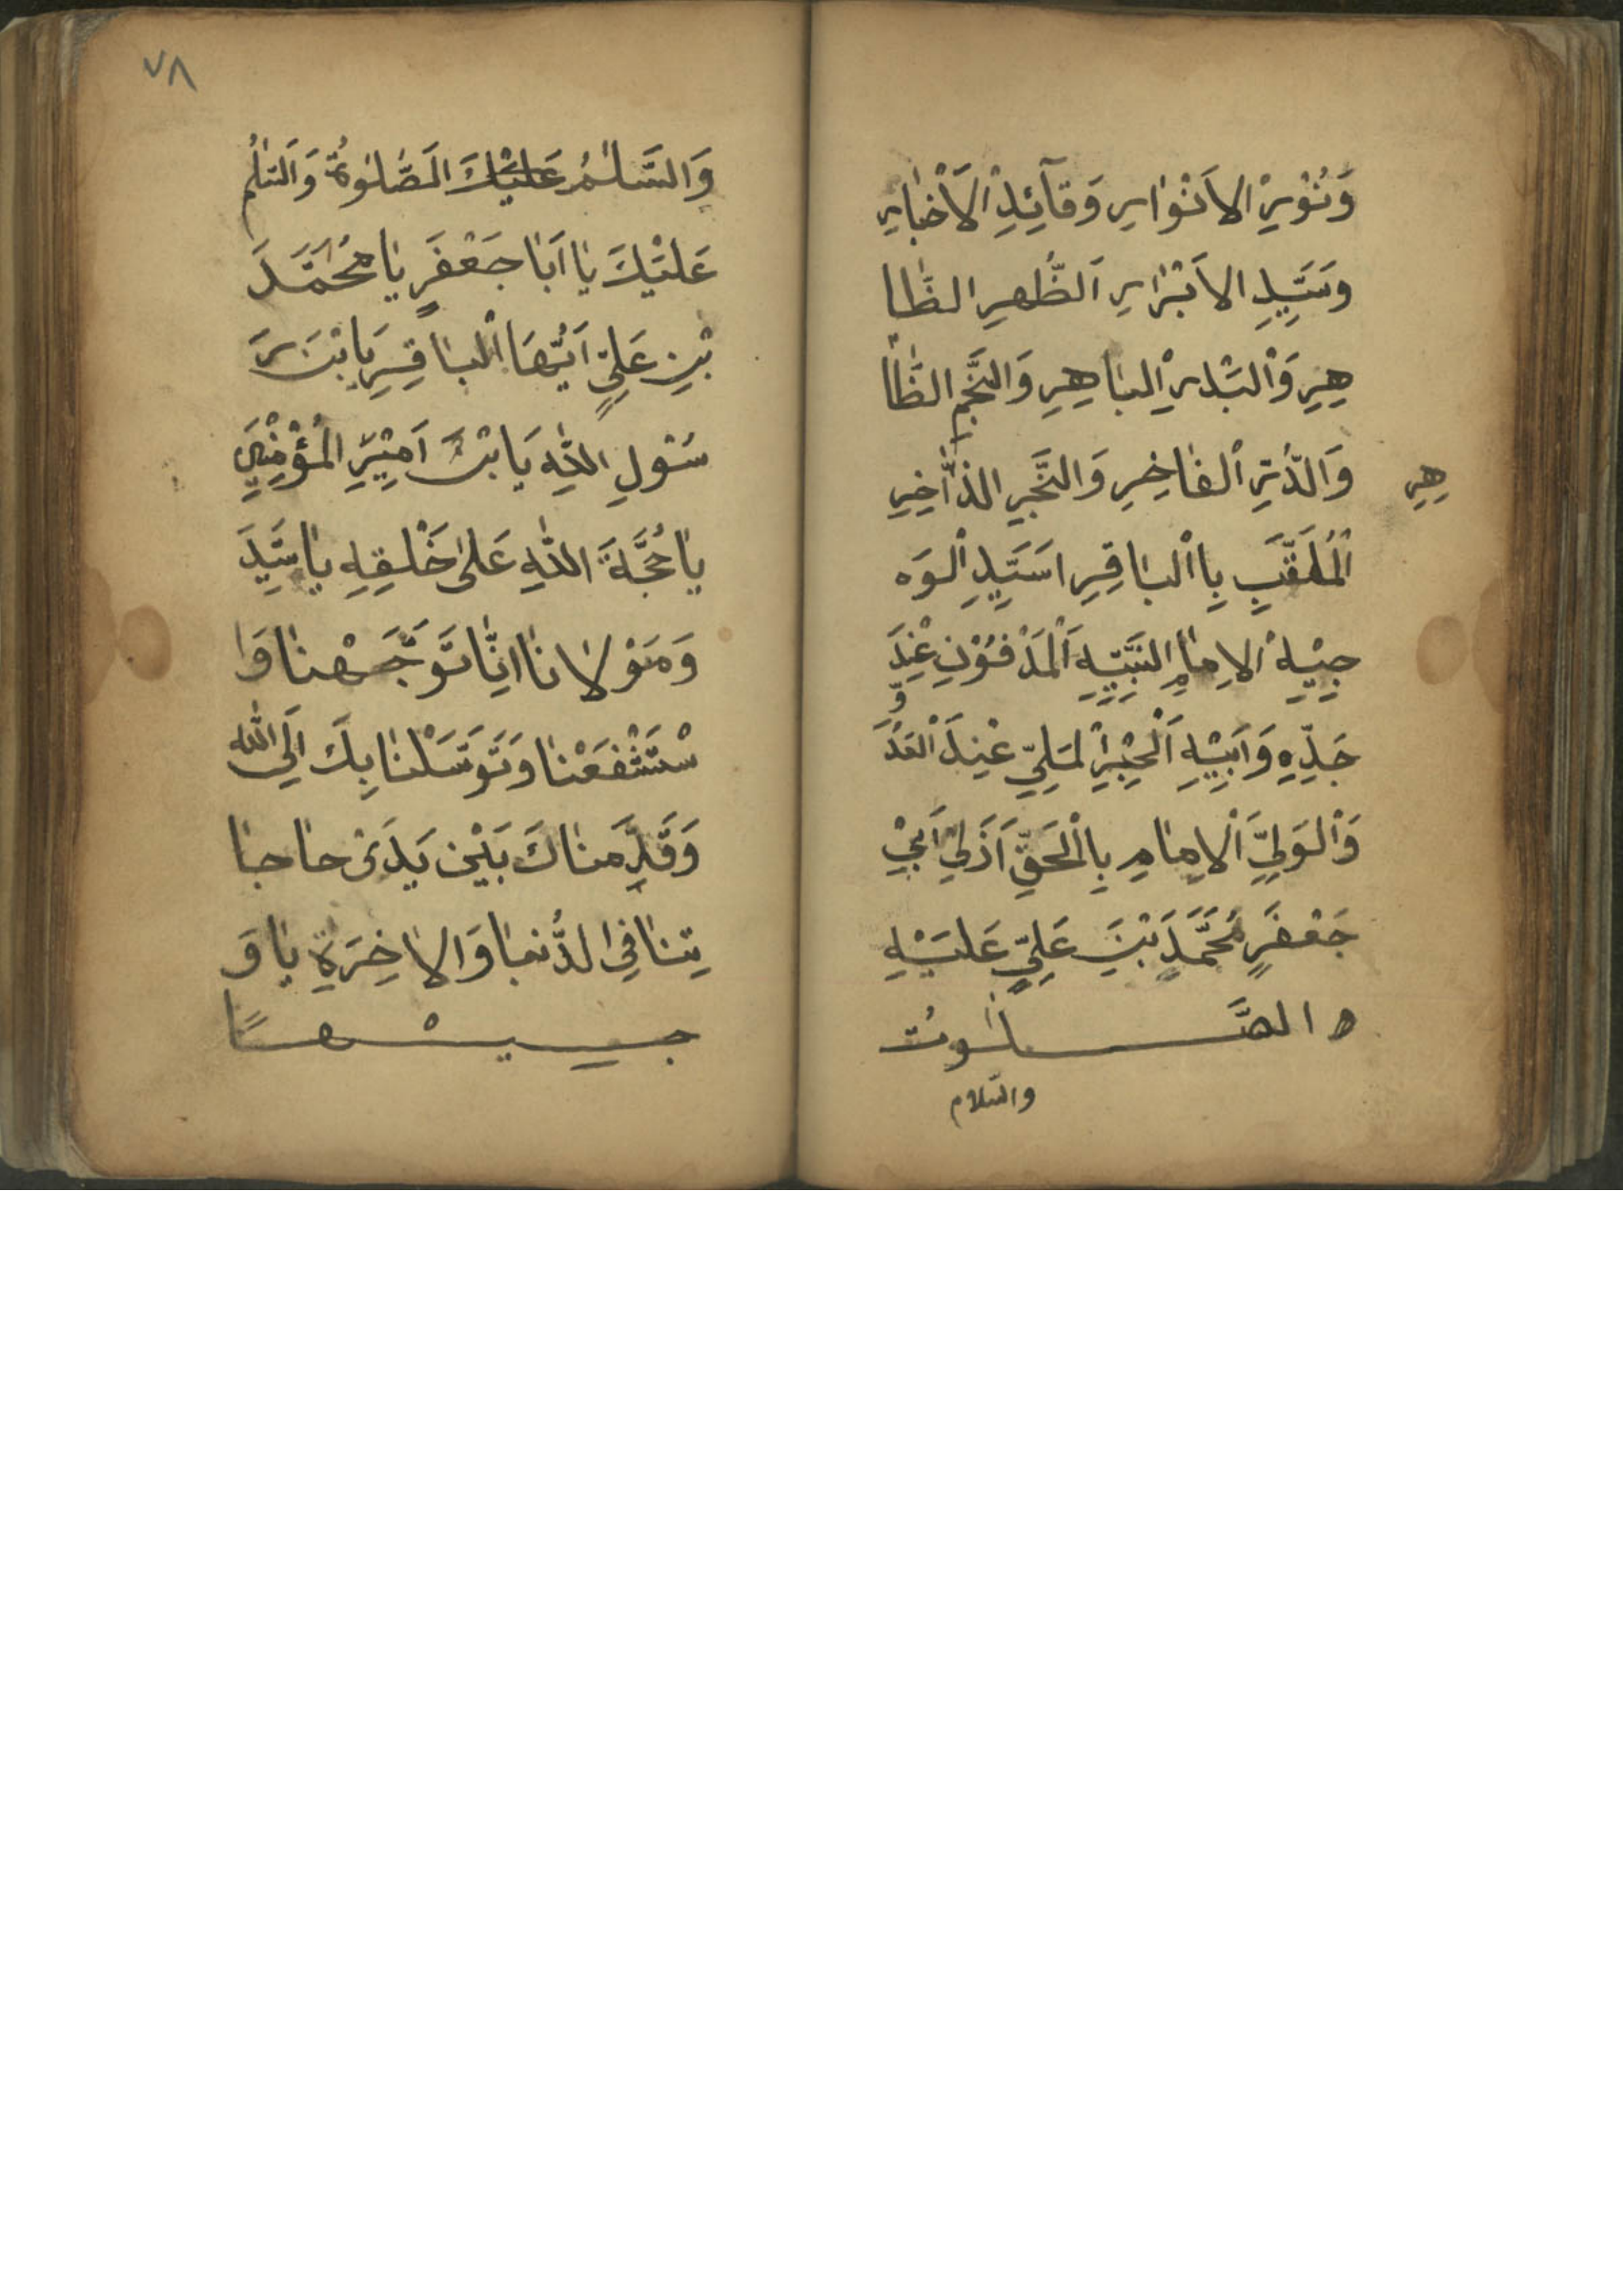 وَنُوْرِ الاَنْوٰارِ وَقٰآئِدِ الْاَخْيٰارِ
وَسَيِّدِ الاَبْرٰارِ اَلطُّهرِ الطّٰا
هِرِ وَالْبَدْرِ الْبٰاهِرِ وَالنَّجْمِ الظّٰا
هِرِ
وَالدُّرِّ الْفٰاخِرِ وَالبَحْرِ الذّٰاخِرِ
اَلْمُلَقَّبِ بِاالْبٰاقِرِ اسَيِّدِ الْوَه
جِيْهِ الاِمٰامِ النَّبِيّهِ اَلْمَدْفُوْنِ عِنْدَ
جَدِّهِ وَاَبِيْهِ اَلْحِبْرِ الْمَلِيِّ عِنْدَ الْعَدُ
وِّ
وَالْوَلِيِّ اَلْاِمٰامِ بِالْحَقِّ اَذَلِيْ اَبِيْ
جَعْفَرٍ مُحَمَّدِ بْنِ عَلِيٍّ عَلَيْهِ
ه الصَّلٰوتُ
والسّلام
٧٨
وَالسَّلٰمُ عَلَيْكَ اَلصَّلٰوةُ وَاَلسَّلٰمُ
عَلَيْكَ يٰا اَبٰا جَعْفَرٍ يٰا مُحَمَّدَ
بْنِ عَلِيٍّ اَيُّهَا الْبٰاقِرِ يَا بْنَ رَ
سُوْلِ اللّٰهِ يَا بْنَ اَمِيْرِ الْمُؤْمِنِيْنَ
يٰا حُجَّةَ اللّٰهِ عَلىٰ خَلْقِهِ يٰا سَيِّدَ
وَمَوْلٰانٰا اِنّٰا تَوَجَّهْنٰا وَا
سْتَشْفَعْنٰا وَتَوَسَّلْنٰا بِكَ اَلِى اللّٰه
وَقَدَّمنٰاكَ بَيْنَ يَدَىْ حٰاجٰا
تِنٰا فِي الدُّنيٰا وَالاٰخِرَةِ يٰا وَ
جِيْهًا